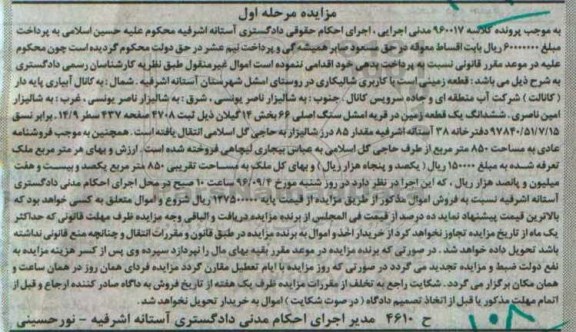 مزایده مرحله اول
به موجب پرونده کلاسه ۹۶۰۰۱۷ مدنی اجرایی ، اجرای احکام حقوقی دادگستری آستانه اشرفیه محکوم علیه حسین اسلامی به پرداخت
مبلغ ۶۰۰۰۰۰۰۰ ریال بابت اقساط معوقه در حق مسعود صابر همیشه گی و پرداخت نیم عشر در حق دولت محکوم گردیده است چون محکوم
علیه در موعد مقرر قانونی نسبت به پرداخت بدهی خود اقدامی ننموده است اموال غیرمنقول طبق نظریه کارشناس رسمی دادگستری
به شرح ذیل می باشد : قطعه زمینی است با کاربری شالیکاری در روستای امشل شهرستان آستانه اشرفیه . شمال : به کانال آبیاری پایه دار
( کانالت ) شرکت آب منطقه ای و جاده سرویس کانال . جنوب : به شالیزار ناصر یونسی ، شرق : به شالیزار ناصر یونسی ، غرب : به شالیزار
امین ناصری . ششدانگ یک قطعه زمین در قریه امشل سنگ اصلی ۶۶ بخش ۱۴ گیلان ذیل ثبت ۴۷۰۸ صفحه ۴۳۷ سطر ۱۴/۹ . برابر نسق
۹۷۸۴۰/۵۱/۷/۱۵ دفترخانه ۳۸ آستانه اشرفیه مقدار ۸۵ درز شالیزار به حاجی گل اسلامی انتقال یافته است . همچنین به موجب فروشنامه
عادی به مساحت ۸۵۰ متر مربع از طرف حاجی گل اسلامی به عباس بیجاری لیچاهی فروخته شده است . ارزش و بهای هر متر مربع ملک
تعرفه شده به مبلغ ۱۵۰۰۰۰ ریال ( یکصد و پنجاه هزار ریال ) و بهای کل ملک به مساحت تقریبی ۸۵۰ متر مربع یکصد و بیست و هفت
میلیون و پانصد هزار ریال ، که این اجرا در نظر دارد در روز شنبه مورخ ۹۶/۰۹/۴ ساعت ۱۰ صبح در محل اجرای احکام مدنی دادگستری
آستانه اشرفیه نسبت به فروش اموال مذکور از طریق مزایده از قیمت پایه ۱۲۷۵۰۰۰۰۰ ریال شروع و اموال متعلق به کسی خواهد بود که
بالاترین قیمت پیشنهاد نماید ده درصد از قیمت فی المجلس از برنده مزایده دریافت و الباقی وجه مزایده ظرف مهلت قانونی که حداکثر
یک ماه از تاریخ مزایده تجاوز نخواهد کرد از خریدار اخذ و اموال به برنده مزایده در طبق قانون و مقررات انتقال و چنانچه منع قانونی نداشته
باشد تحویل داده خواهد شد . در صورتی که برنده مزایده در موعد مقرر بقیه بهای مال را نپردازد سپرده وی پس از کسر هزینه مزایده به
نفع دولت ضبط و مزایده تجدید می گردد در صورتی که روز مزایده با ایام تعطیل مقارن گردد مزایده فردای همان روز در همان ساعت و
همان مکان برگزار می گردد . شکایت راجع به تخلف از مقررات مزایده ظرف یک هفته از تاریخ فروش به دادگاه صادر کننده ارجاع و قبل از
اتمام مهلت مذکور یا قبل از اتخاذ تصمیم دادگاه ( در صوت شکایت ) اموال به خریدار تحویل نخواهد شد .
ح ۴۶۱۰ مدیر اجرای احکام مدنی دادگستری آستانه اشرفیه - نورحسینی